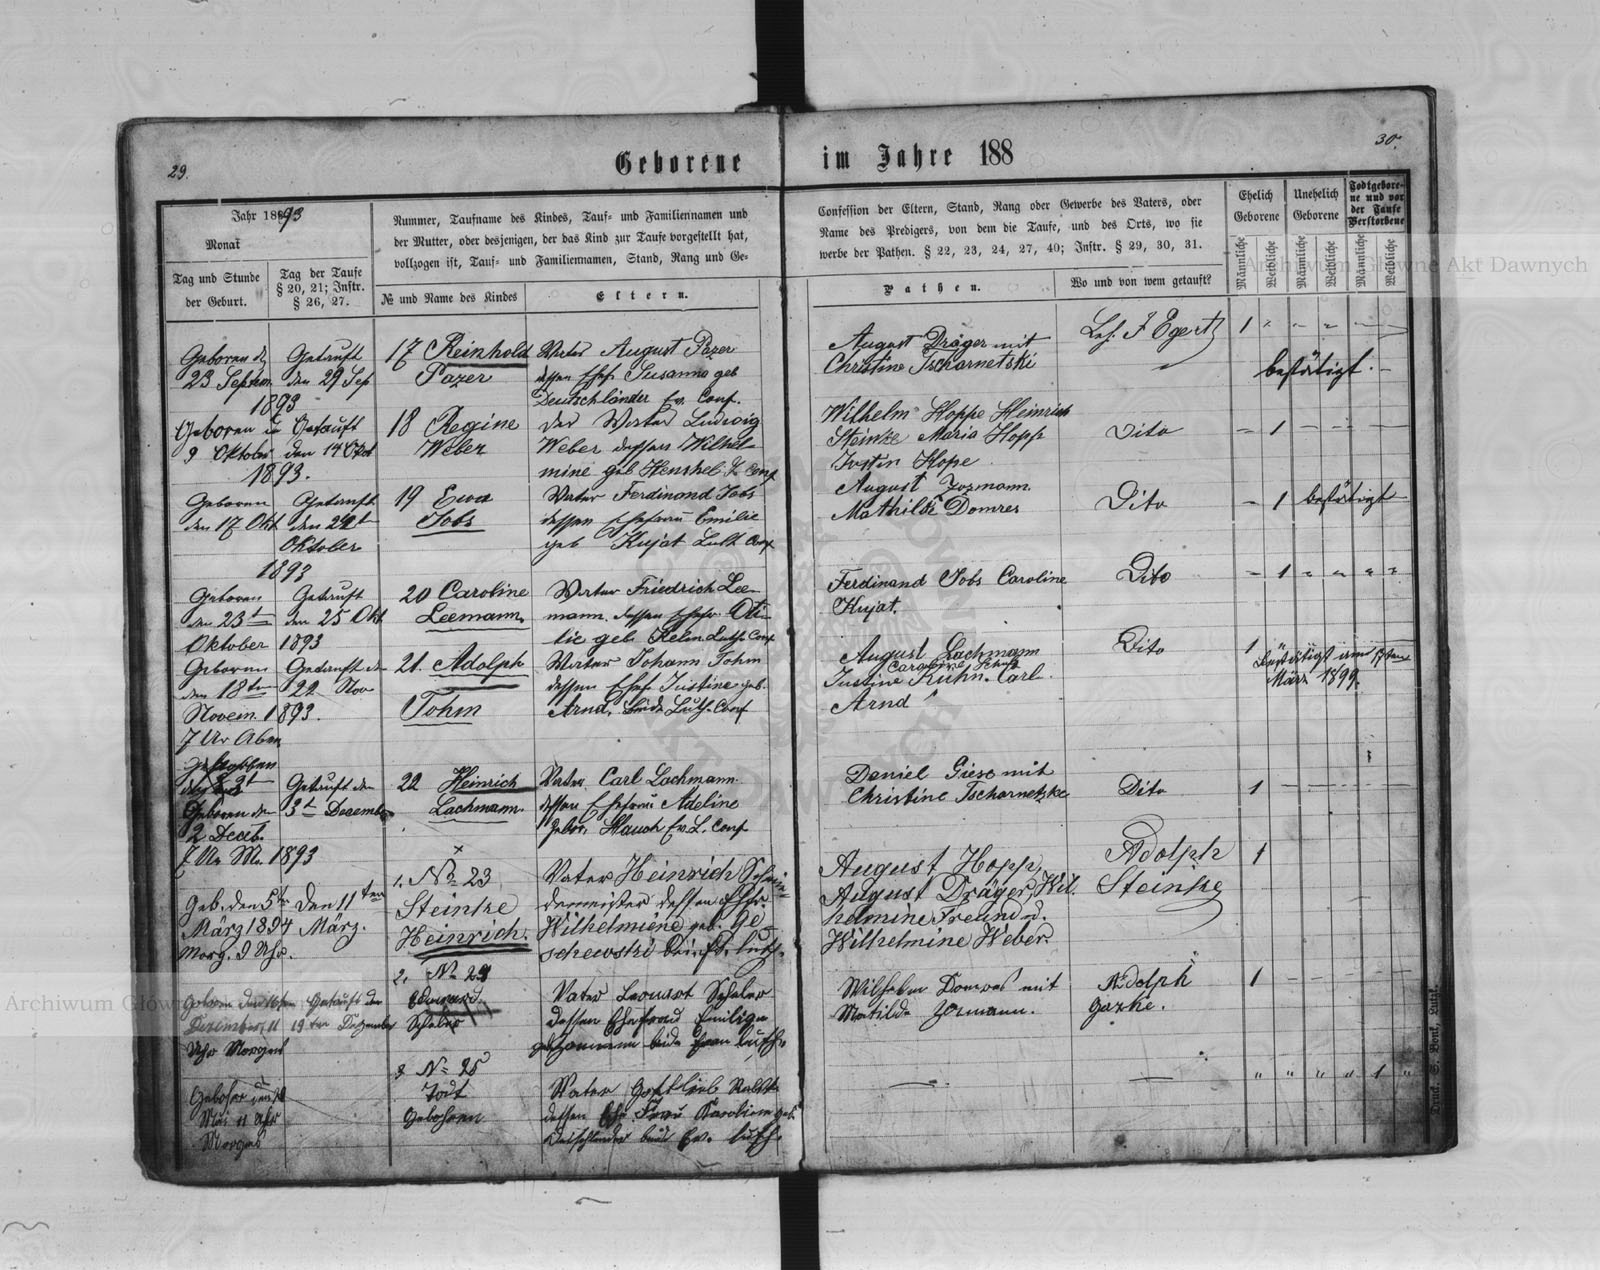 29.
30.
Geborene im Jahre 188
Jahr 1893
Monat
Tag und Stunde
der Geburt.
Tag der Taufe
§ 20, 21; Instr.
§ 26, 27.
Nummer, Taufname des Kindes, Tauf- und Familiennamen und
der Mutter, oder desjenigen, der das Kind zur Taufe vorgestellt hat,
vollzogen ist, Tauf- und Familiennamen, Stand, Rang und Ge-
№ und Name des Kindes
Eltern.
Confession der Eltern, Stand, Rang oder Gewerbe des Vaters, oder
Name des Predigers, von dem die Taufe, und des Orts, wo sie
werbe der Pathen. § 22, 23, 24, 27, 40; Instr. § 29, 30, 31.
Pathen.
Wo und von wem getauft?
Ehelich
Geborene
Unehelich
Geborene
Todtgebore-
ne und vor
der Taufe
Verstorbene
Männliche
Weibliche
Männliche
Weibliche
Männliche
Weibliche
Geboren d
23 Septem.
1893
Getauft
den 29 Sep
17 Reinhold
Pozer
Vater August Pozer
dessen Ehef. Susanna geb
Deutschländer Ev. Conf.
August Dräger mit
Christine Tscharnetski
Leh. F Egert
1
bestätigt.
Geboren
9 Oktober
1893.
Getauft
den 14 Okt
18 Regine
Weber
Der Vater Ludwig
Weber dessen Wilhel-
mine geb Henschel Conf
Wilhelm Hoppe Heinrich
Steinke Maria Hopp
Justin Hope
Dito
1
Geboren
den 17 Okt
Getauft
den 22t
Oktober
1893
19 Ewa
Jobs
Vater Ferdinand Jobs
dessen Ehefrau Emilie
geb Kujat Luth Conf
August Jozmann
Mathilde Domres
Dito
1 bestätigt
Geboren
den 23t
Oktober 1893
Getauft
den 25 Okt
20 Caroline
Leemann.
Vater Friedrich Lee-
mann. dessen Ehefr. Oti-
lie geb. Luth. Conf
Ferdinand Jobs Caroline
Kujat.
Dito
1
Geboren
den 18ten
Novem. 1893.
7 Ur Aben
Getauft de
22 Nov
21. Adolph
Tohm
Vater Johann Tohm
dessen Ehef. Justine geb.
Arnd. beide Luth. Conf
August Lachmann
Caroline
Justine Kuhn. Carl
Arnd
Dito
1 bestätigt am 17ten
März 1899.
Gestorben
Geboren den
2 Deceb.
7 Ur Mo. 1893
Getauft den
3t Dezember
22 Heinrich
Lachmann.
Vater Carl Lachmann
dessen Ehefrau Adeline
Gebor. Hauch Ev. L. Conf
Daniel Giese mit
Christine Tscharnetzke
Dito
1
Geb. den 5ten
März 1894
Morg. 9 Uhr.
Den 11ten
März.
1. № 23
Steinke
Heinrich.
Vater Heinrich Schmie-
demeister dessen Ehfr.
Wilhelmiene geb. Ge-
schewski luth.
August Hopp,
August Dräger, Wil-
helmine Freund u.
Wilhelmine Weber.
Adolph
Steinke
1
Geboren den 16ten
Dezember, 11
Uhr Morgens
Getauft den
19ten Dezember
2. № 24
Eduard.
Scheler
Vater Leonart Scheler
dessen Ehefrau Emilie
beide luth.
Wilhelm Domres mit
Matilde Jozmann.
Adolph
Gazke.
1
Mai 11 Uhr
Morgens
3 № 25
Todt
Gebohren
Vater Gottlieb
dessen Ehe Frau Karoline geb
Deischlender beide Ev. luth.
1
Druck. S. Bont, Lutzk.
Archiwum Główne Akt Dawnych
Archiwum Główne